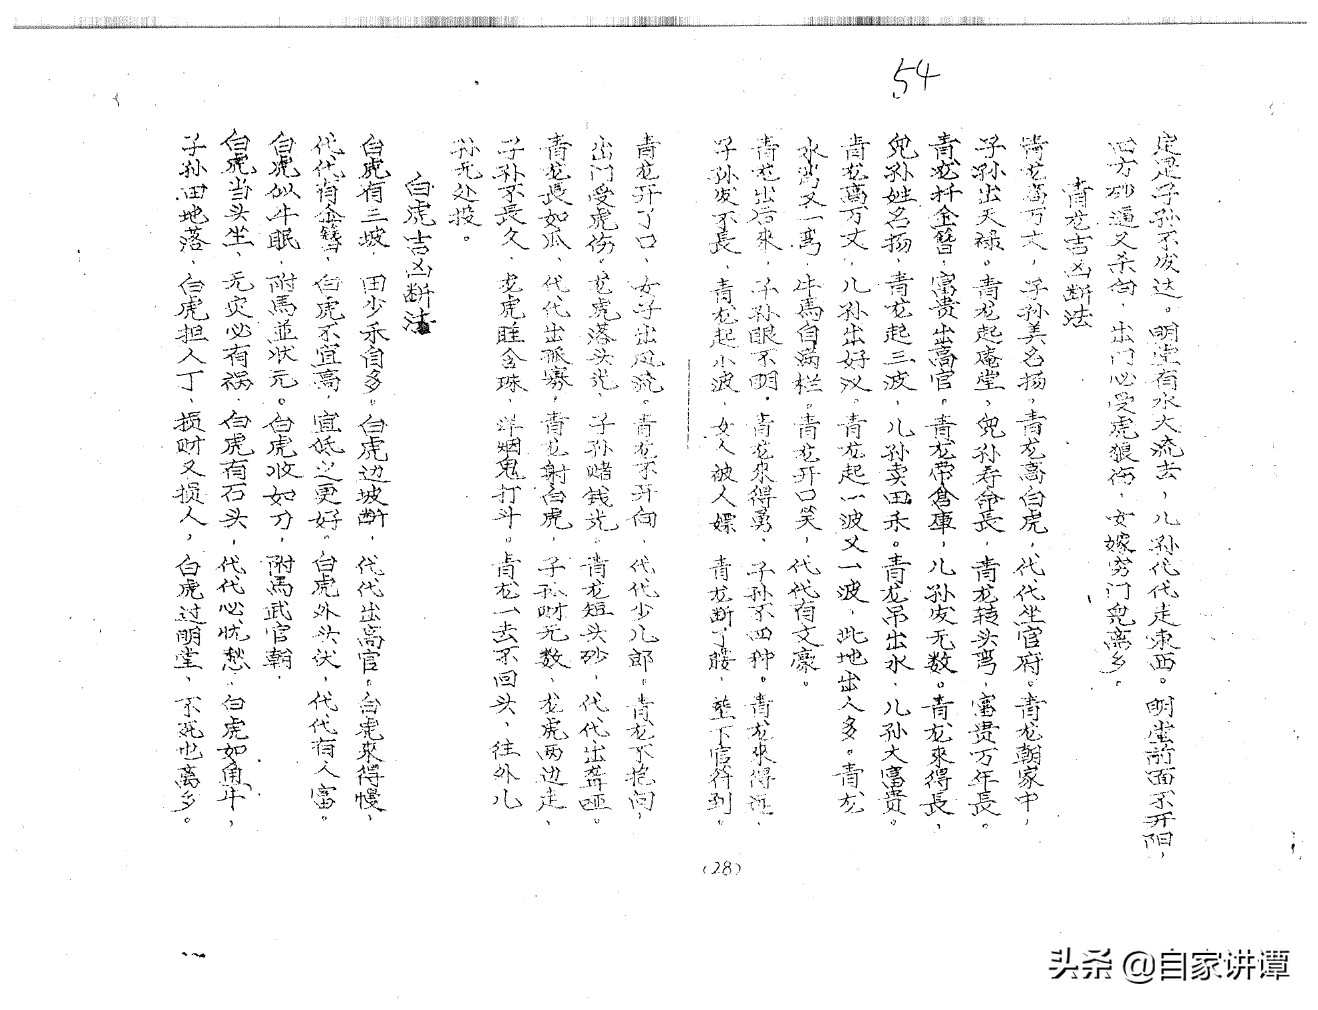 54
定是子孙不发达。明堂有水大流去，儿孙代代走東西。明堂前面不开阳，
四方砂逼又杀向，出门必受虎狼伤，女嫁穷门兒离乡。
青龙吉凶断法
青龙高万丈，子孙美名扬，青龙高白虎，代代坐官府。青龙朝家中，
子孙出天禄。青龙起庵堂，兒孙寿命長，青龙转头弯，富贵万年長。
青龙扦金簪，富贵出高官。青龙带倉庫，儿孙发无数。青龙來得長，
兒孙姓名扬，青龙起三波，儿孙卖田禾。青龙吊出水，儿孙大富贵。
青龙高万丈，儿孙出好汉。青龙起一波又一波，此地出人多。青龙
水弯又一弯，牛馬自满栏。青龙开口笑，代代有文豪。
青龙出后來，子孙眼不明。青龙來得勇，子孙不四种。青龙來得远，
子孙发不長，青龙起小波，女人被人嫖 青龙断了腰，堂下官符到。
青龙开了口，女子出风流。青龙不开向，代代少儿郎。青龙不抱向，
出门受虎伤。龙虎落头光，子孙赌钱光。青龙短头砂，代代出聋哑。
青龙長如瓜、代代出孤寡，青龙射白虎，子孙财无数，龙虎两边走，
子孙不長久、龙虎睡含珠，洋烟鬼打斗。青龙一去不回头，往外儿
孙无处投。
白虎吉凶断法
白虎有三坡，田少禾自多。白虎边坡断，代代出高官。白虎來得慢，
代代有金簪，白虎不宜高，宜低之更好。白虎外头伏，代代有人富。
白虎似牛眠，附馬並状元。白虎收如刀，附馬武官朝，
白虎当头坐，无灾必有祸，白虎有石头，代代心忧愁，白虎如角牛，
子孙田地落，白虎担人丁，损财又损人，白虎过明堂，不死也离乡。
(28)
头条 @自家讲谭